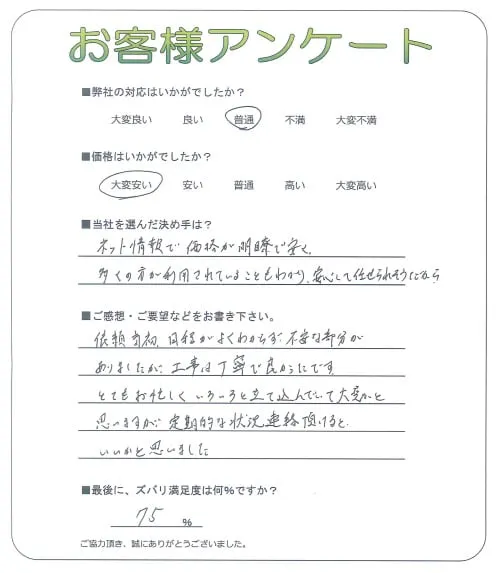 お客様アンケート
■弊社の対応はいかがでしたか？
大変良い 良い 普通 不満 大変不満
■価格はいかがでしたか？
大変安い 安い 普通 高い 大変高い
■当社を選んだ決め手は？
ネット情報で価格が明瞭で安く、
多くの方が利用されていることもわかり、安心して任せられそうだから
■ご感想・ご要望などをお書き下さい。
依頼当初、日程がよくわからず不安な部分が
ありましたが、工事は丁寧で良かったです。
とてもお忙しく いろいろと立て込んでいて大変かと
思いますが 定期的な状況連絡頂けると
いいかと思いました
■最後に、ズバリ満足度は何％ですか？
75 ％
ご協力頂き、誠にありがとうございました。